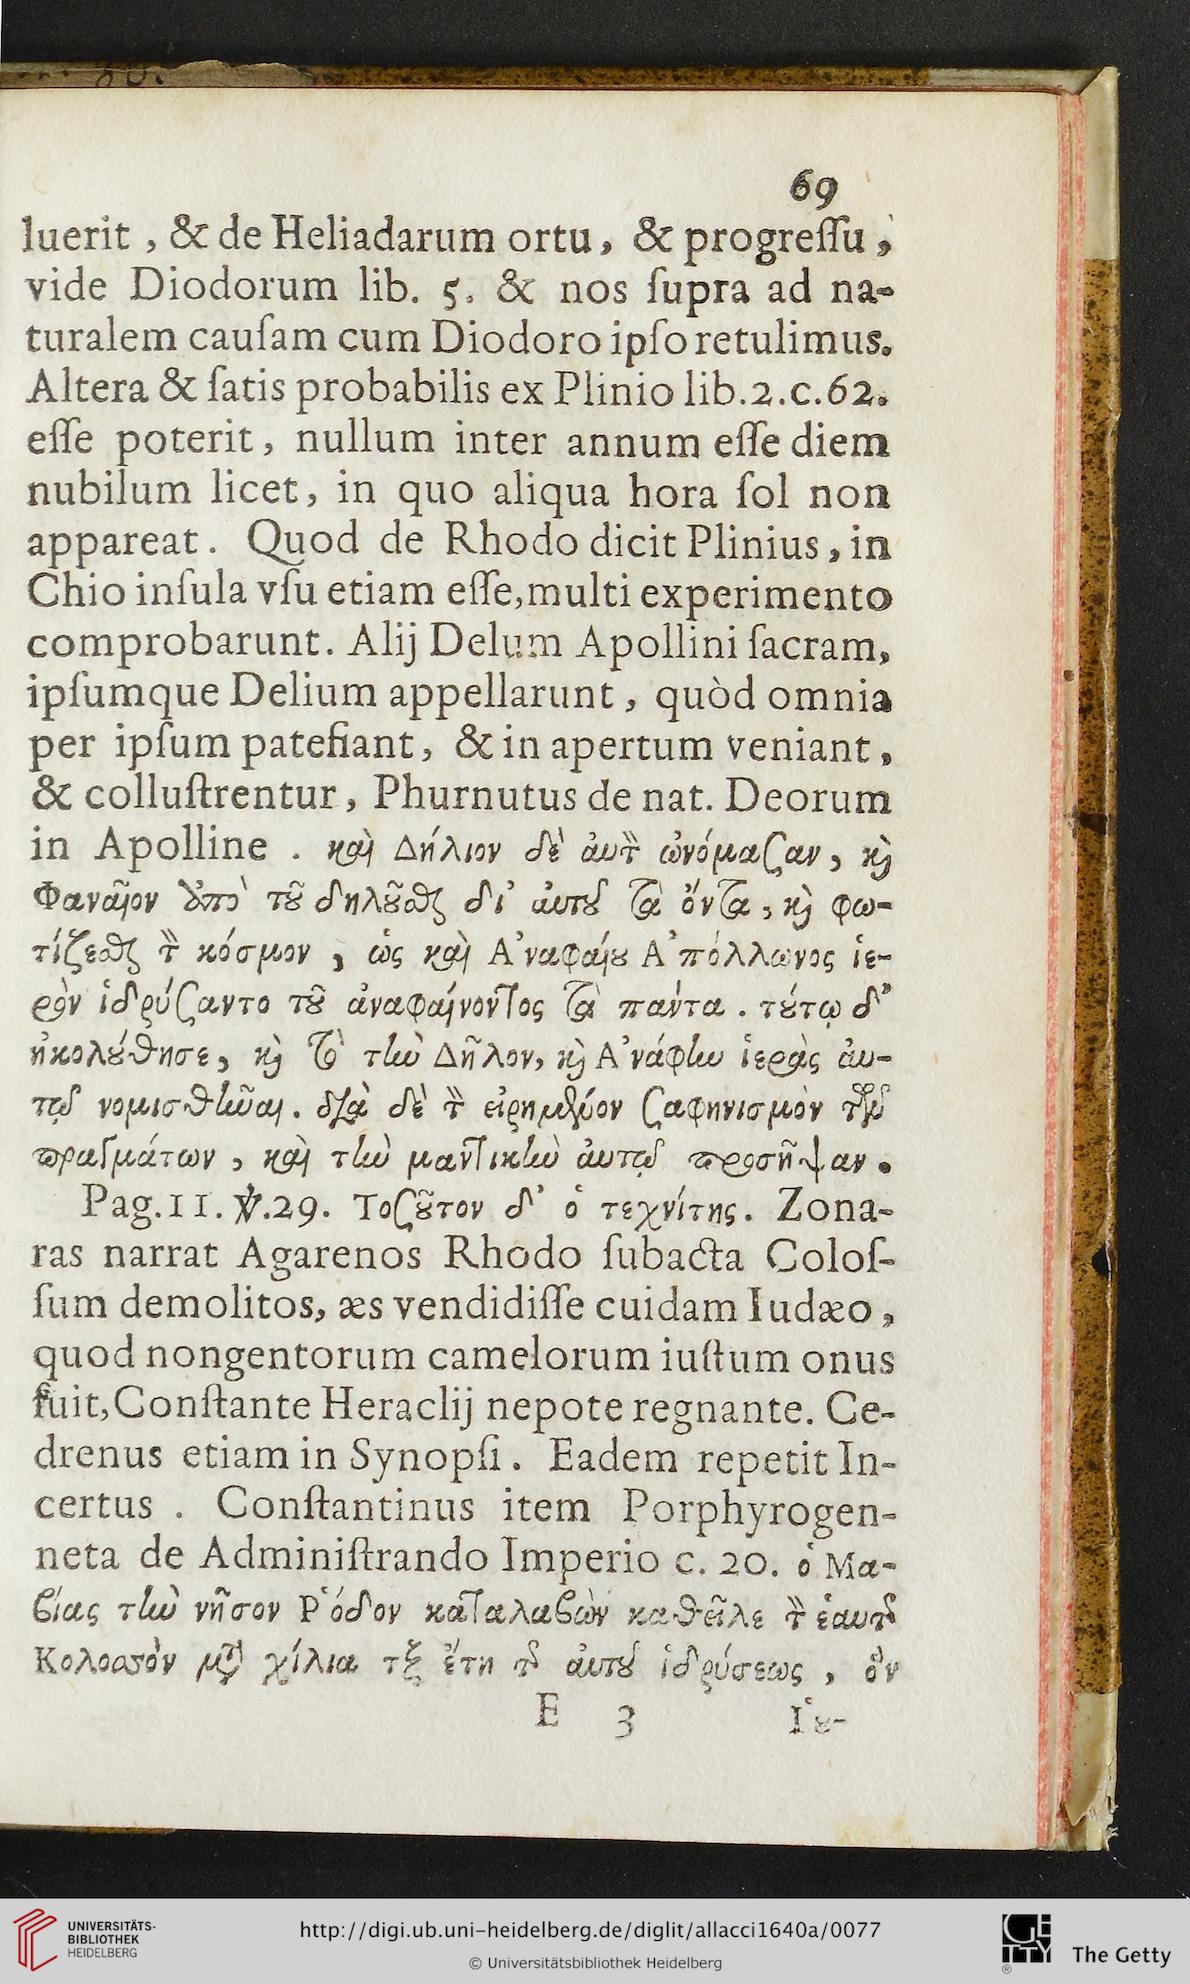 69
luerit , & de Heliadarum ortu, & progreſſu,
vide Diodorum lib. 5. & nos ſupra ad na-
turalem cauſam cum Diodoro ipſo retulimus.
Altera & ſatis probabilis ex Plinio lib.2.c.62.
eſſe poterit, nullum inter annum eſſe diem
nubilum licet, in quo aliqua hora ſol non
appareat. Quod de Rhodo dicit Plinius, in
Chio inſula vſu etiam eſſe,multi experimento
comprobarunt. Alij Delum Apollini ſacram,
ipſumque Delium appellarunt, quòd omnia
per ipſum patefiant, & in apertum veniant,
& colluſtrentur, Phurnutus de nat. Deorum
in Apolline . καὶ Δήλιον δὲ ἀυτὸν ὠνόμαζαν, καὶ
Φαναῖον ἀπὸ τοῦ δηλοῦσθαι δι' ἀυτοῦ τὰ ὄντα, καὶ φω-
τίζεσθαι τὸν κόσμον, ὡς καὶ Α'ναφαίου Α'πόλλωνος ἱε-
ρὸν ἱδρύσαντο τοῦ ἀναφαίνοντος τὰ πάντα. τούτῳ δ'
ἠκολούθησε, καὶ τὸ τὴν Δῆλον, καὶ Α'νάφην ἱερὰς ἀυ-
τῷ νομισθῆναι. διὰ δὲ τὸν εἰρημένον σαφηνισμὸν τῶν
πραγμάτων, καὶ τὴν μαντικὴν ἀυτῷ προσῆψαν.
Pag.11. ℣.29. Τοσοῦτον δ' ὁ τεχνίτης. Zona-
ras narrat Agarenos Rhodo ſubacta Coloſ-
ſum demolitos, æs vendidiſſe cuidam Iudæo,
quod nongentorum camelorum iuſtum onus
fuit,Conſtante Heraclij nepote regnante. Ce-
drenus etiam in Synopſi. Eadem repetit In-
certus . Conſtantinus item Porphyrogen-
neta de Adminiſtrando Imperio c. 20. ὁ Μα-
βίας τὴν νῆσον Ῥόδον καταλαβὼν καθεῖλε τὸν ἐαυτῆς
Κολοσσὸν μετὰ χίλια τξ ἔτη τῆς ἀυτοῦ ἱδρύσεως, ὃν
E 3 Ι'ου-
UNIVERSITÄTS-
BIBLIOTHEK
HEIDELBERG
http://digi.ub.uni-heidelberg.de/diglit/allacci1640a/0077
© Universitätsbibliothek Heidelberg
The Getty